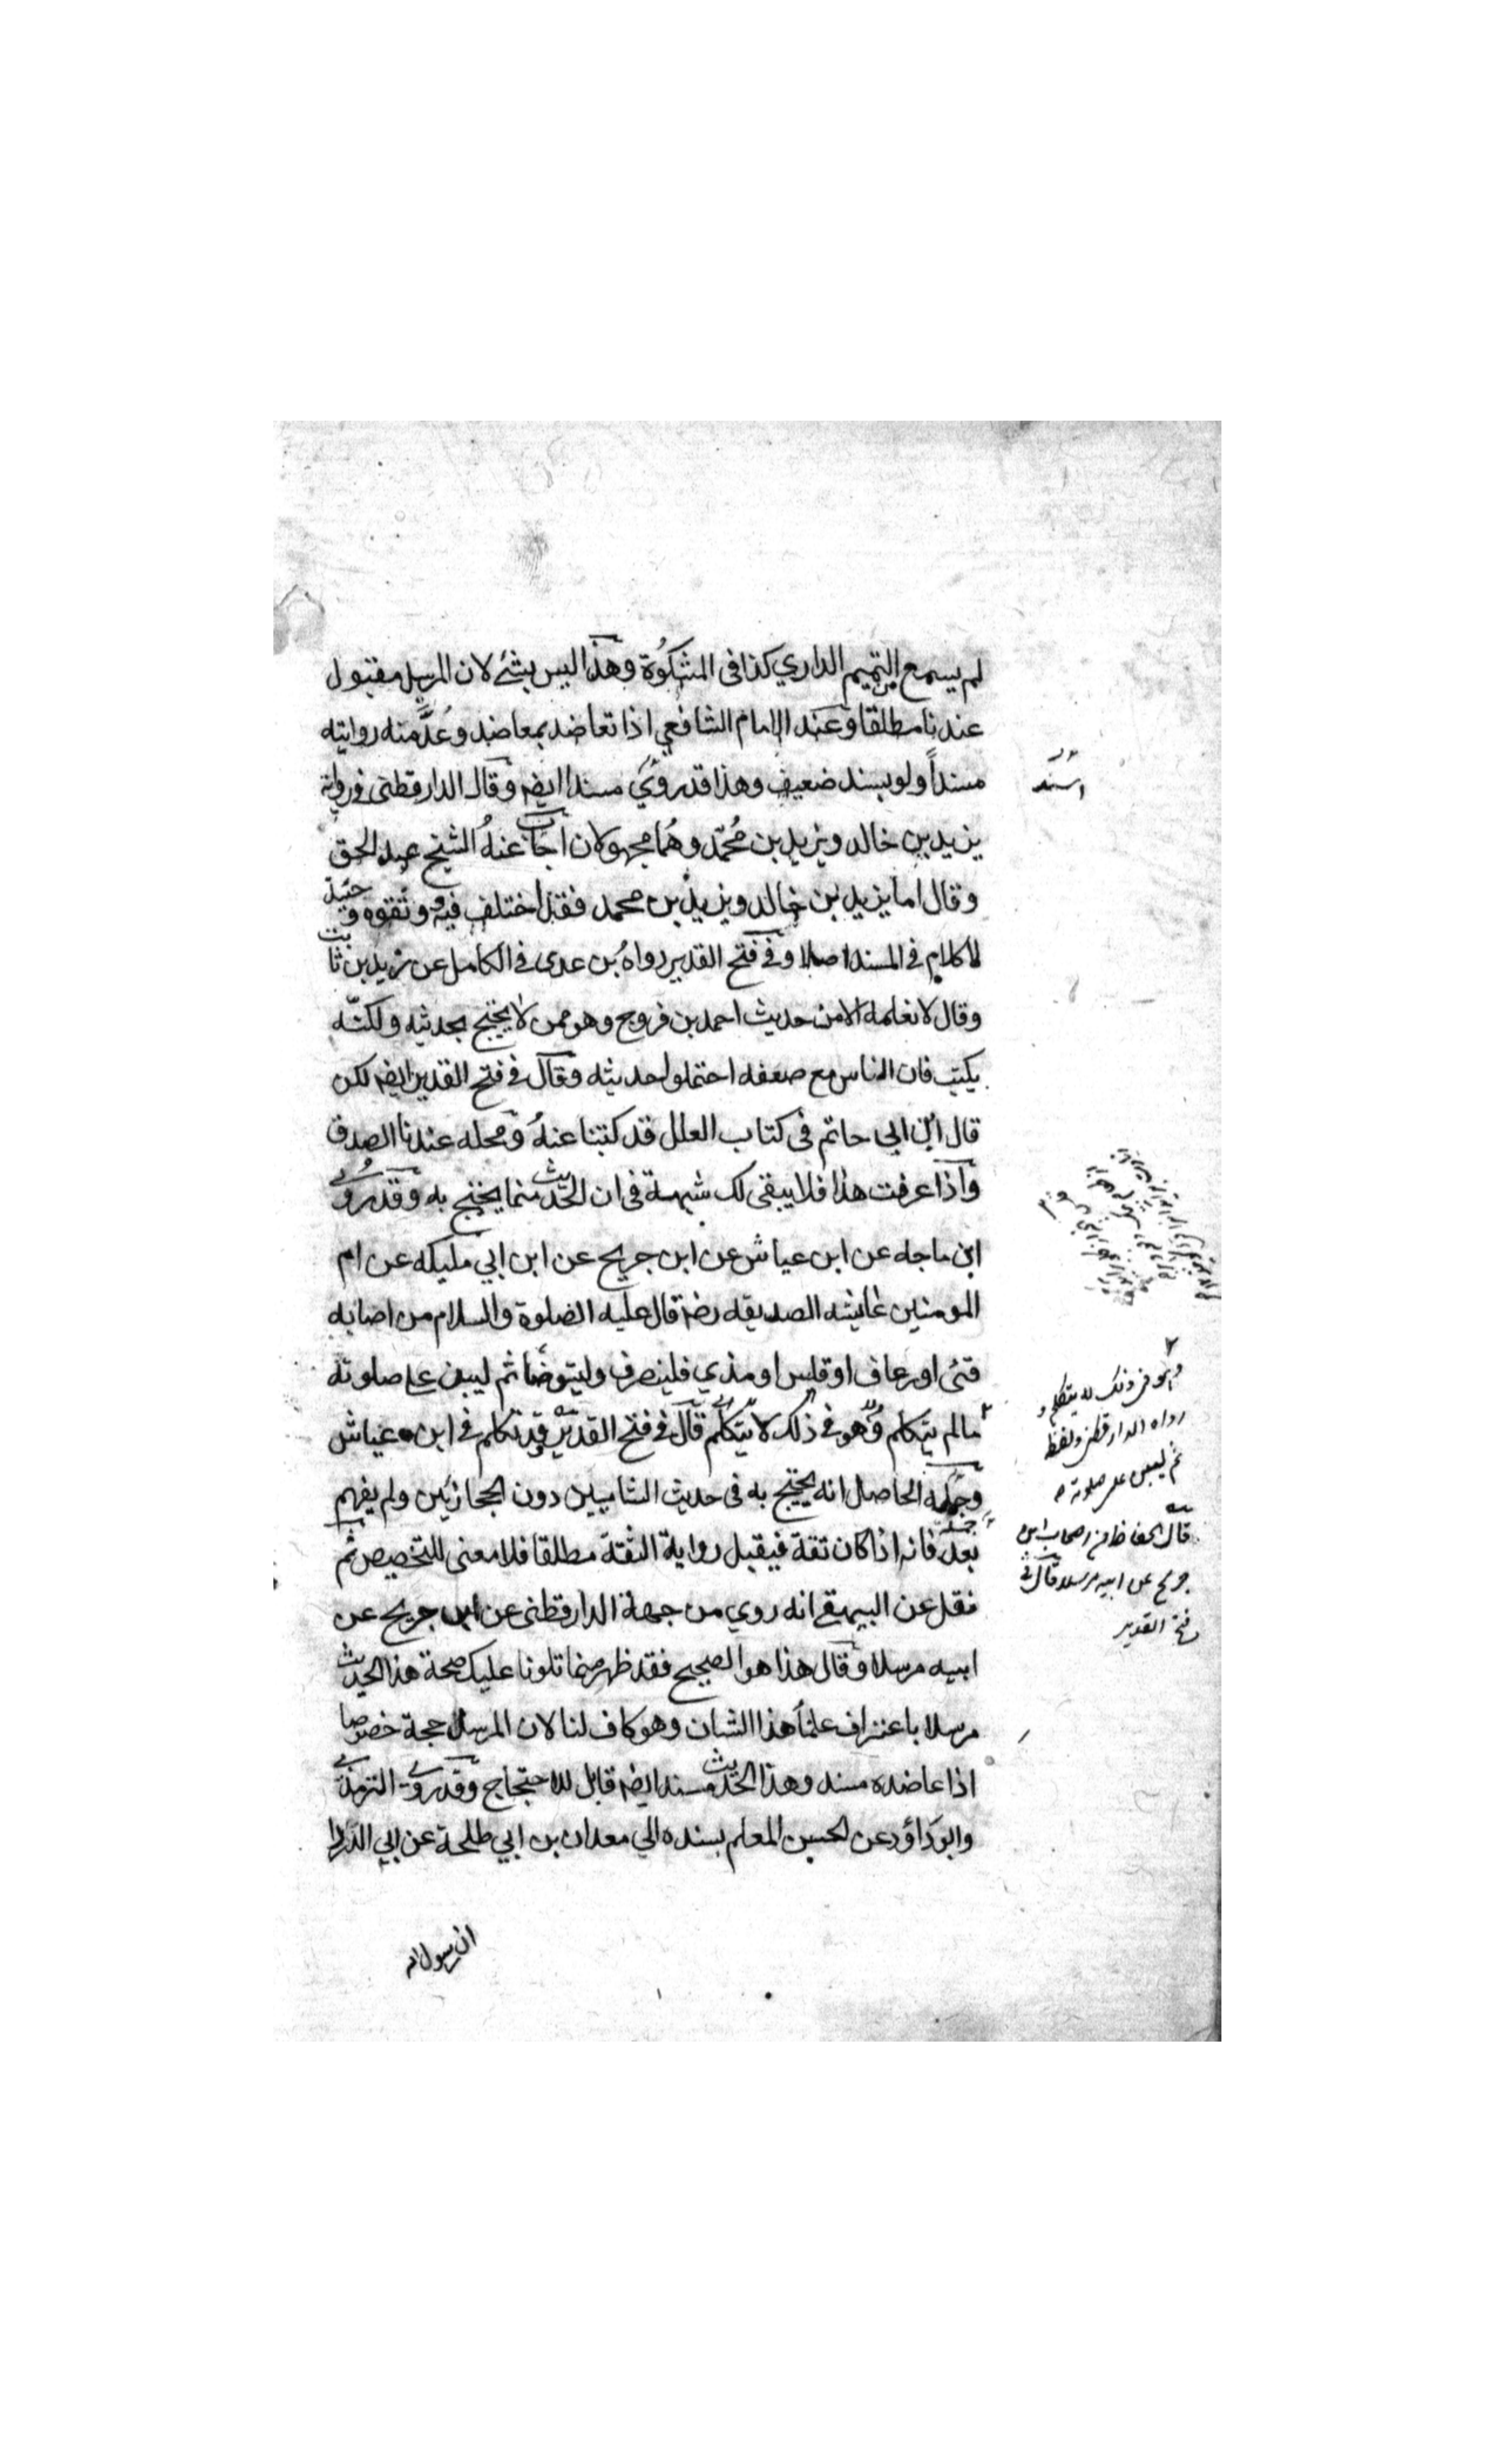 لم يسمع التميم الداري كذا فى المشكوة وهذا ليس بشئ لان المرسل مقبول
عندنا مطلقا وعند الامام الشافعي اذا تعاضد بمعاضد وعد منه روايته
مسنداً ولو بسند ضعيف وهذا قد روي مسندا ايضه وقال الدارقطنى فى رواية
يزيد بن خالد ويزيد بن مُحمّد وهُما مجهولان اجاب عنهُ الشيخ عبد الحق
وقال اما يزيد بن خالد ويزيد بن محمد فقد اختلف فيه وثقوه وحينئذ
لا كلام فى المسند اصلا وفي فتح القدير رواهُ بن عدى فى الكامل عن زيد بن ثابت
وقال لا نعلمه الا من حديث احمد بن فروح وهو ممن لا يحتج بحديثه ولكنّه
يكتب فان الناس مع ضعفه احتملوا حديثه وقال فى فتح القدير ايضه لكن
قال ابن ابى حاتم فى كتاب العلل قد كتبنا عنهُ ومحله عندنا الصدق
واذا عرفت هذا فلا يبقى لك شبهة فى ان الحديث مما يحتج به وقد روي
ابن ماجه عن ابن عياش عن ابن جريج عن ابن ابي مليكه عن ام
المومنين عايشه الصديقه رضه قال عليه الصلوة والسلام من اصابه
قئى او رعاف او قلس او مذي فلينصرف وليتوضا ثم ليبن على صلوته
مالم يتكلم وهو فى ذلك لا يتكلم قال فى فتح القدير قد تكلم فى ابن عياش
وجمله الحاصل انه يحتج به فى حديث الشاميين دون الحجازيين ولم يفهم
بعد فانه اذا كان ثقة فيقبل رواية الثقة مطلقا فلا معنى للتخصيص ثم
نقل عن البيهقي انه روي من جهة الدارقطنى عن ابن جريج عن
ابيه مرسلا وقال هذا هو الصحيح فقد ظهر مما تلونا عليك صحة هذا الحديث
مرسلا باعتراف علماً هذا الشان وهو كاف لنا لان المرسل حجة خصوصا
اذا عاضده مسند وهذا الحديث مسندا ايضه قابل للاحتجاج وقد روي الترمذي
وابوداؤد عن الحسين المعلم بسنده الي معدان بن ابي طلحة عن ابي الدردا
ان رسول الله
اسند
وهو فى ذلك لا يتكلم و
رواه الدارقطنى ولفظه
ثم ليبن على صلوته
قال الحفاظ من اصحاب ابن
جريج عن ابيه مرسلا قال فى
فتح القدير